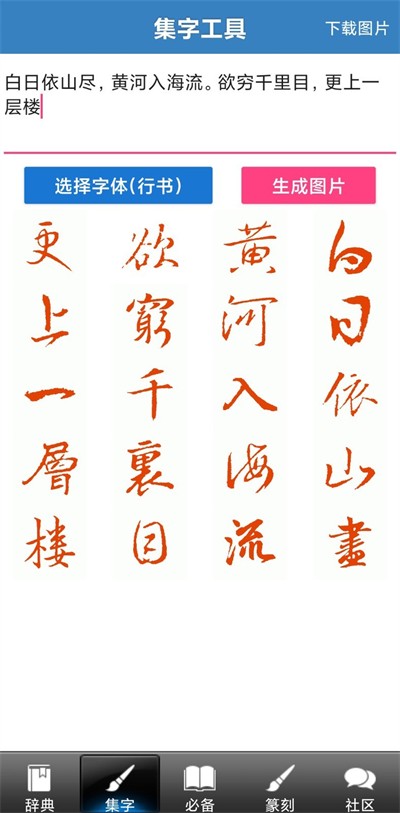 集字工具
下载图片
白日依山尽，黄河入海流。欲穷千里目，更上一
层楼
选择字体(行书)
生成图片
白日依山盡
黄河入海流
欲窮千裏目
更上一層楼
辞典
集字
必备
篆刻
社区